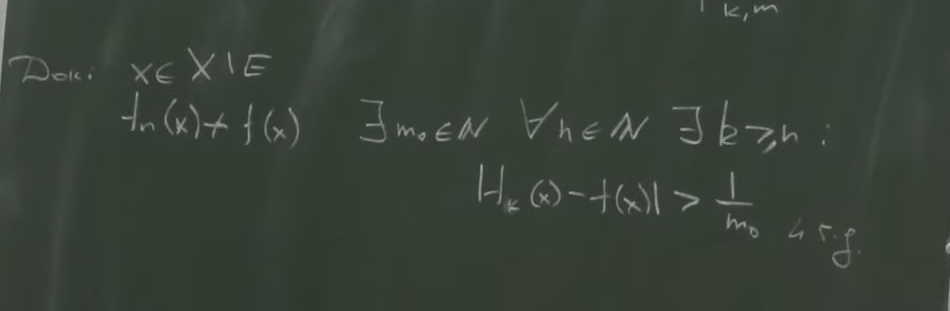 k,m
Dok: x∈X\E
fn(x)↛f(x) ∃m₀∈N ∀n∈N ∃k≥n:
|fₖ(x)-f(x)| > 1/m₀ ч.т.д.